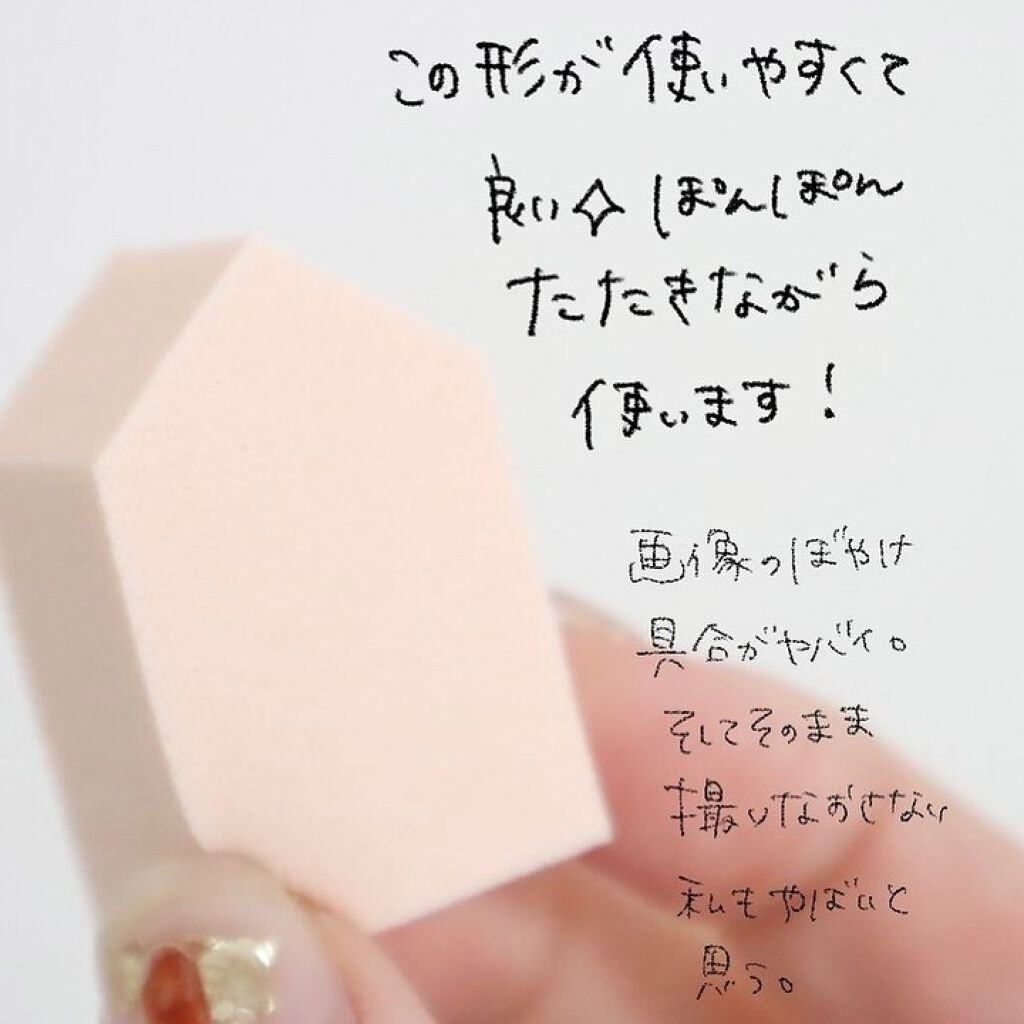 この形が使いやすくて
良い✧ ぽんぽん
たたきながら
使います！
画像のぼやけ
具合がヤバイ。
そしてそのまま
撮りなおせない
私もやばいと
思う。